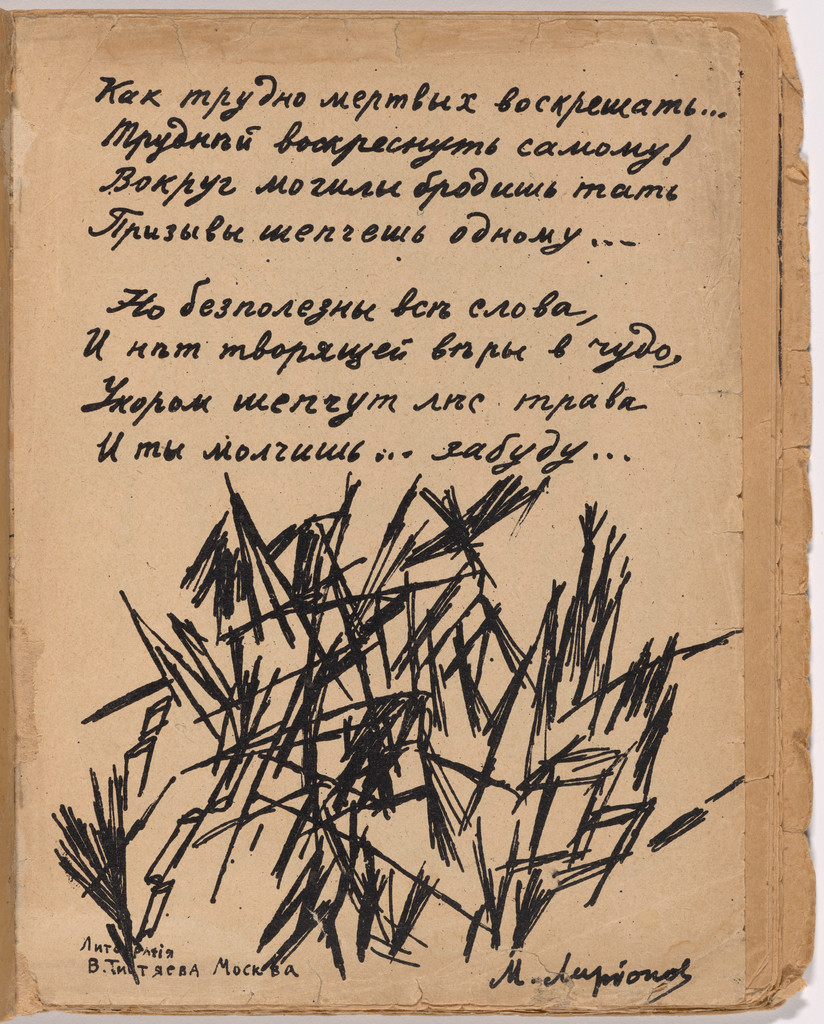 Как трудно мертвых воскрешать...
Труднѣй воскреснуть самому!
Вокруг могилы бродишь тать
Призывы шепчешь одному...
Но безполезны всѣ слова,
И нѣт творящей вѣры в чудо,
Укором шепчут лѣс трава
И ты молчишь... забуду...
Литографія
В. Титяева Москва
М. Ларіонов